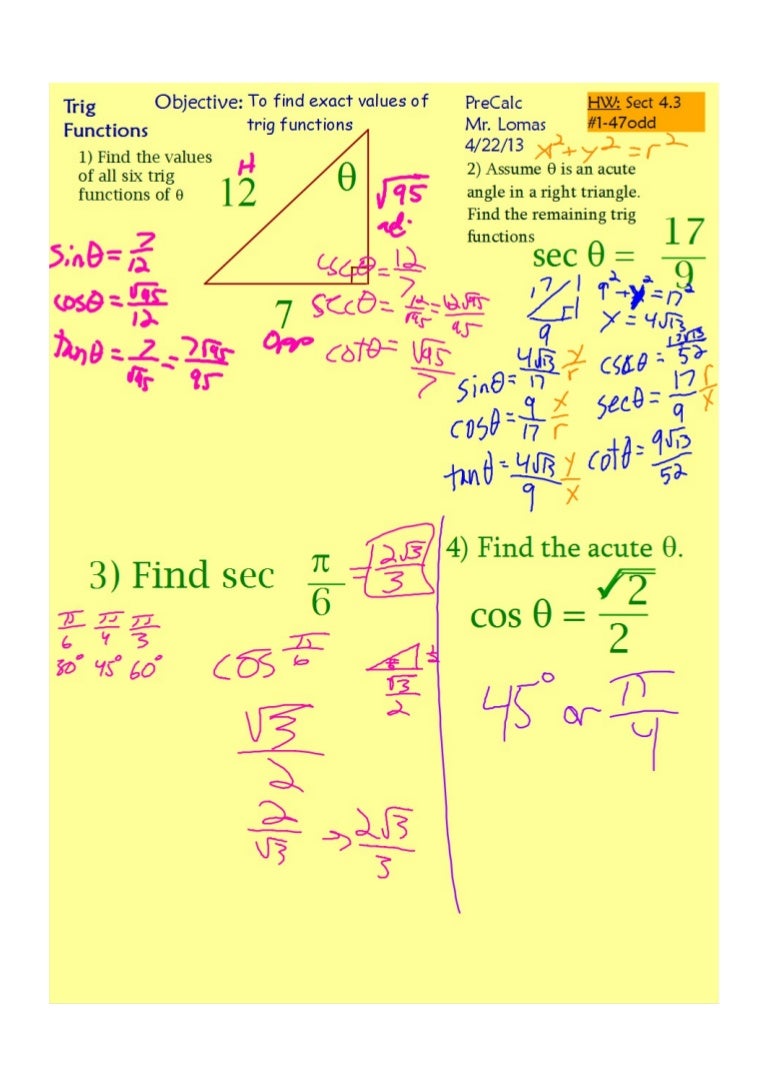 Trig Functions
Objective: To find exact values of trig functions
PreCalc
Mr. Lomas
4/22/13
HW: Sect 4.3
#1-47odd
1) Find the values
of all six trig
functions of θ
H
12
θ
√95
adj.
7
opp
sinθ = 7/12
cosθ = √95/12
tanθ = 7/√95 = 7√95/95
cscθ = 12/7
secθ = 12/√95 = 12√95/95
cotθ = √95/7
x² + y² = r²
2) Assume θ is an acute
angle in a right triangle.
Find the remaining trig
functions
sec θ = 17/9
17
9
9² + y² = 17²
y = 4√13
sinθ = 4√13/17 y/r
cosθ = 9/17 x/r
tanθ = 4√13/9 y/x
cscθ = 17√13/52
secθ = 17/9 r/x
cotθ = 9√13/52
3) Find sec π/6 = 2√3/3
π/6 π/4 π/3
30° 45° 60°
cos π/6
√3/2
√3/2
2/√3 → 2√3/3
4) Find the acute θ.
cos θ = √2/2
45° or π/4